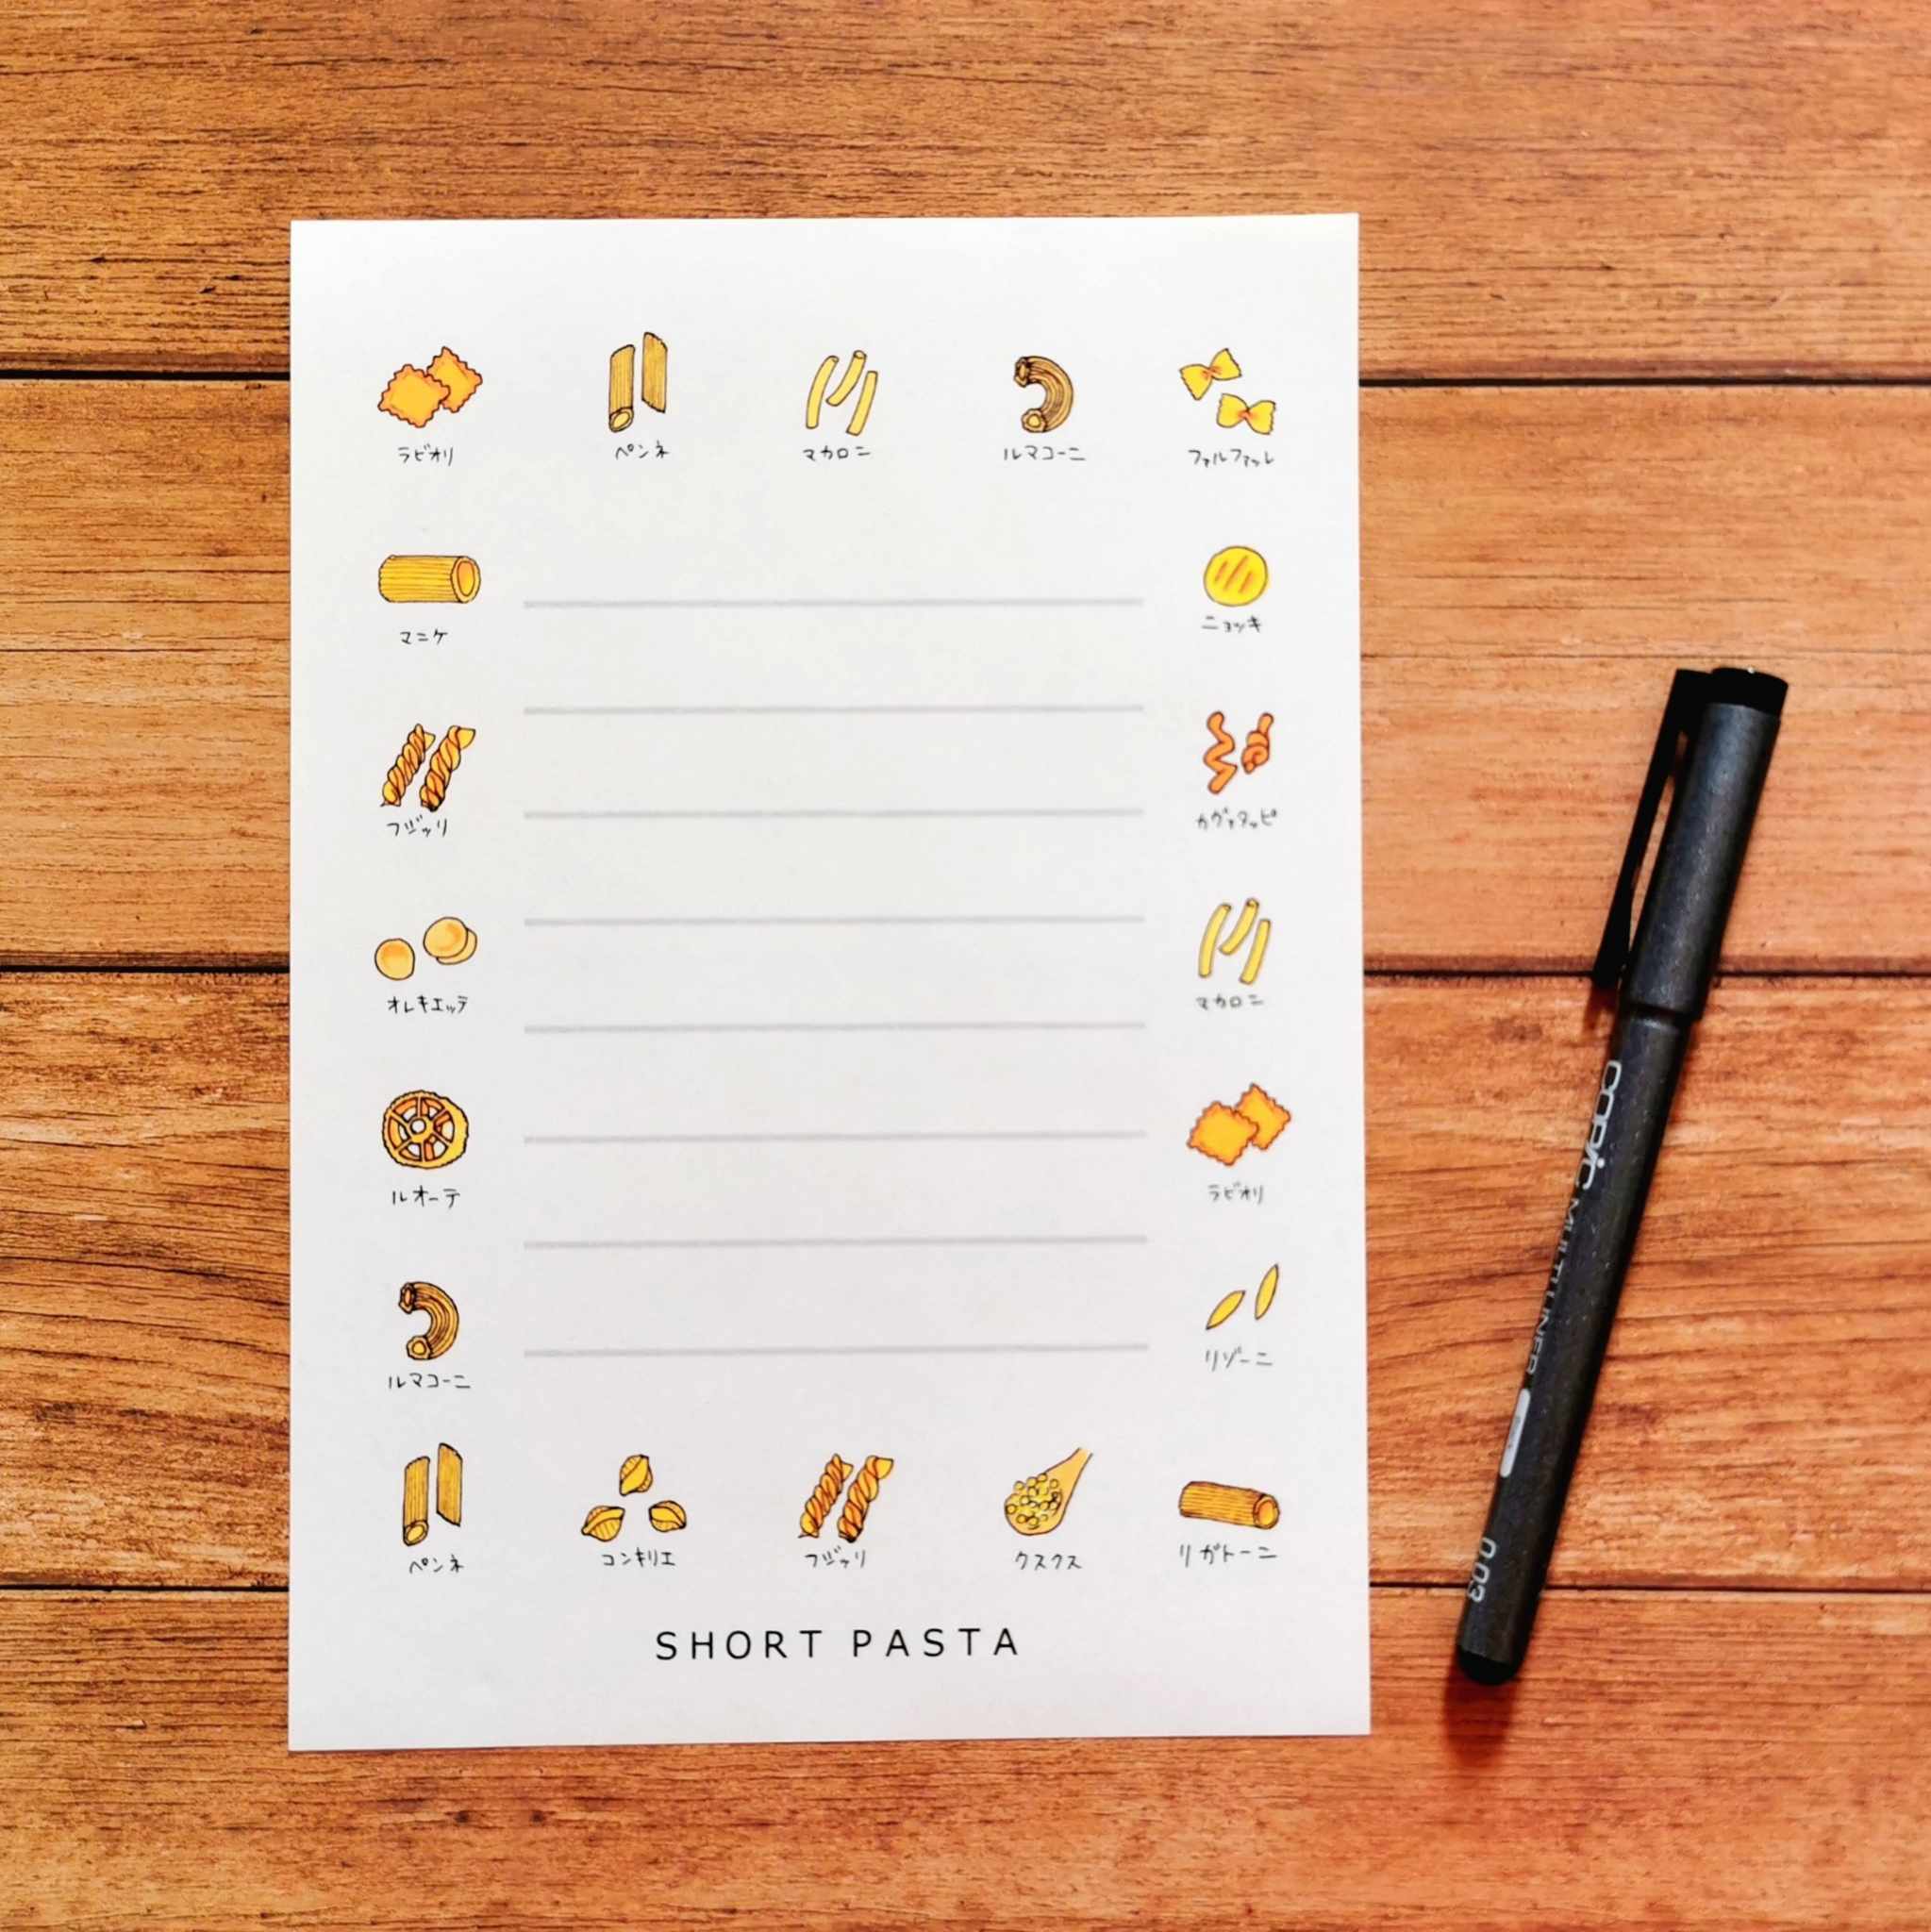 ラビオリ
ペンネ
マカロニ
ルマコーニ
ファルファッレ
マニケ
ニョッキ
フジッリ
カヴァタッピ
オレキエッテ
マカロニ
ルオーテ
ラビオリ
ルマコーニ
リゾーニ
ペンネ
コンキリエ
フジッリ
クスクス
リガトーニ
SHORT PASTA
COPIC MULTI LINER
0.03